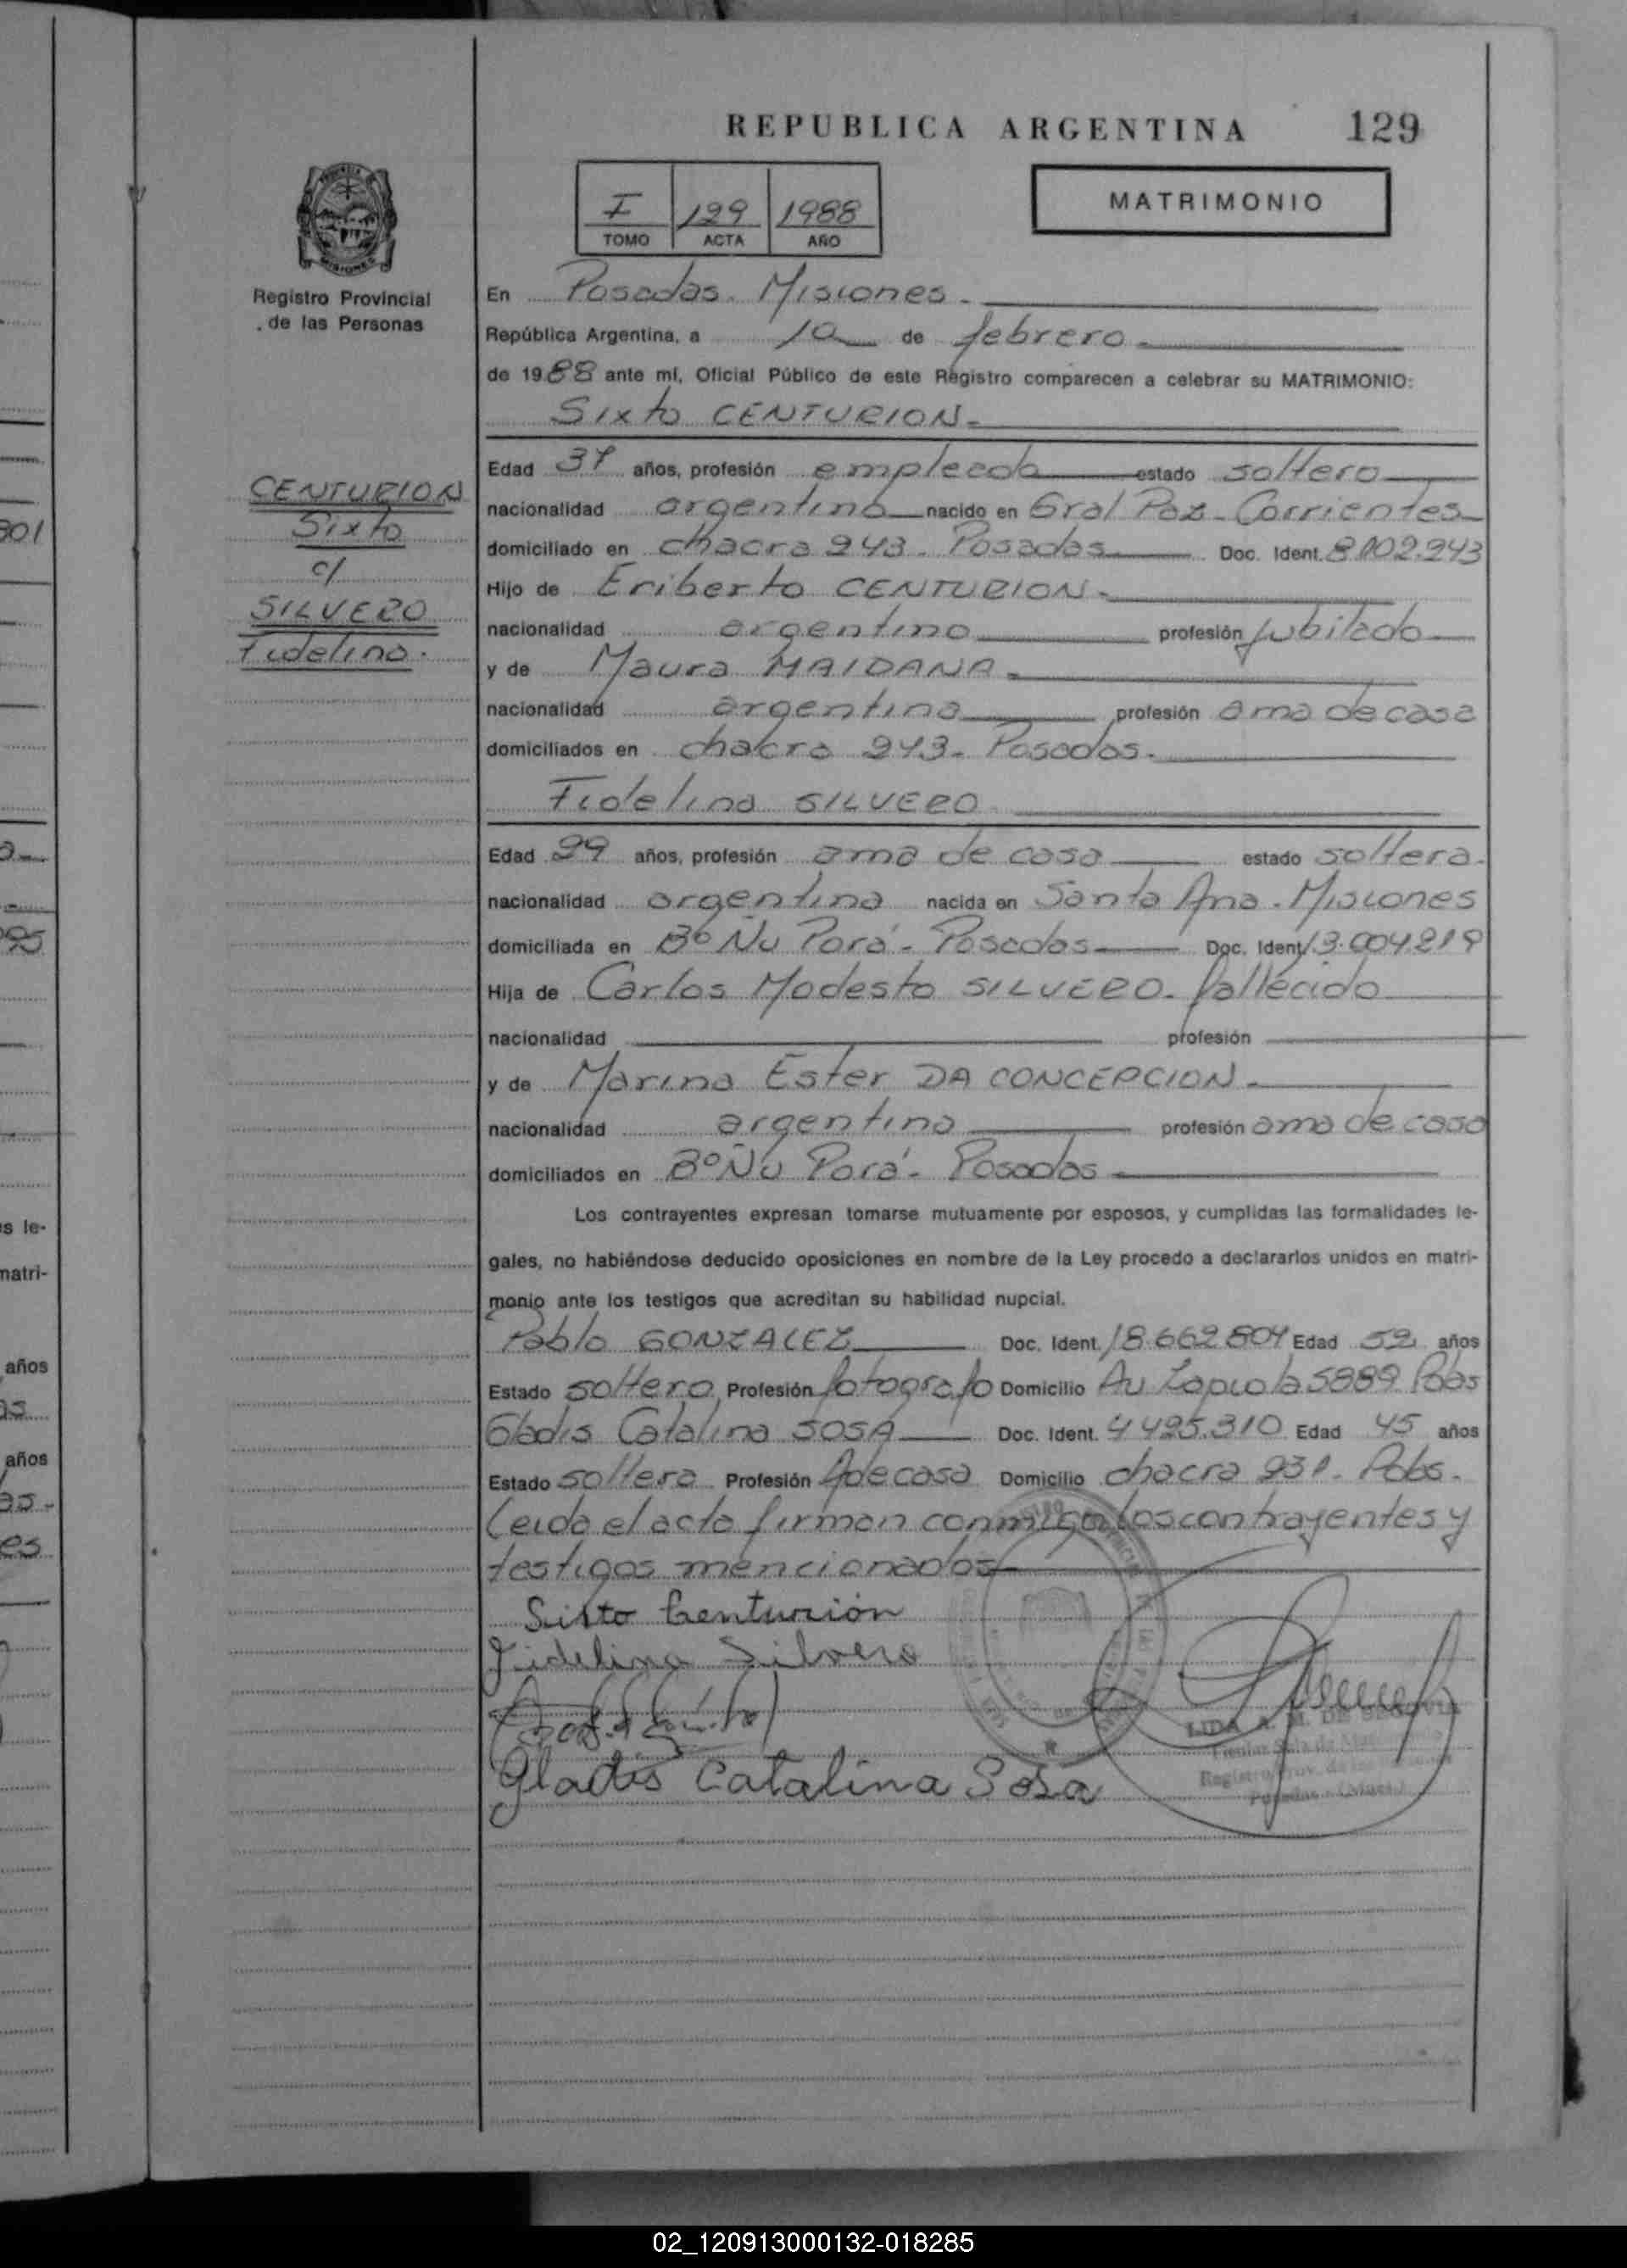 REPUBLICA ARGENTINA 129
I 129 1988
TOMO ACTA AÑO
MATRIMONIO
PROVINCIA DE MISIONES
Registro Provincial
de las Personas
CENTURION
Sixto
c/
SILVERO
Fidelina.
En Posadas. Misiones.
República Argentina, a 10 de febrero
de 1988 ante mí, Oficial Público de este Registro comparecen a celebrar su MATRIMONIO:
Sixto CENTURION
Edad 37 años, profesión empleado estado soltero
nacionalidad argentino nacido en Gral Paz - Corrientes
domiciliado en chacra 243. Posadas Doc. Ident. 8.102.243
Hijo de Eriberto CENTURION
nacionalidad argentino profesión jubilado
y de Maura MAIDANA
nacionalidad argentina profesión ama de casa
domiciliados en chakra 243. Posadas.
Fidelina SILVERO
Edad 29 años, profesión ama de casa estado soltera.
nacionalidad argentina nacida en Santa Ana. Misiones
domiciliada en Bº Ñu Porá - Posadas Doc. Ident. 13.004.219
Hija de Carlos Modesto SILVERO. fallecido
nacionalidad profesión
y de Marina Ester DA CONCEPCION
nacionalidad argentina profesión ama de casa
domiciliados en Bº Ñu Porá - Posadas
Los contrayentes expresan tomarse mutuamente por esposos, y cumplidas las formalidades le-
gales, no habiéndose deducido oposiciones en nombre de la Ley procedo a declararlos unidos en matri-
monio ante los testigos que acreditan su habilidad nupcial.
Pablo GONZALEZ Doc. Ident. 18.662.804 Edad 52 años
Estado soltero Profesión fotografo Domicilio Av Zapiola 5889 Pdas
Gladis Catalina SOSA Doc. Ident. 4425.310 Edad 45 años
Estado soltera Profesión A de casa Domicilio chacra 231. Pdas.
Leida el acta firman conmigo los contrayentes y
testigos mencionados
Sixto Centurión
Fidelina Silvero
Gladis Catalina Sosa
LIDA A. M. DE SEGOVIA
02_120913000132-018285